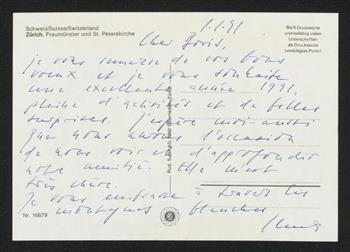 Schweiz/Suisse/Switzerland
Zürich. Fraumünster und St. Peterskirche
Bis 5 Grussworte
und beliebig vielen
Unterschriften
als Drucksache
(verbilligtes Porto)
1.1.91
Cher Boris,
je vous remercie de vos bons
voeux et je vous souhaite
une excellente année 1991,
pleine d'activités et de belles
surprises. J'espère moi aussi
que nous aurons l'occasion
de nous voir et d'approfondir
notre amitié. Elle m'est
très chère.
Je vous embrasse à travers les
montagnes blanches
Nr. 16679